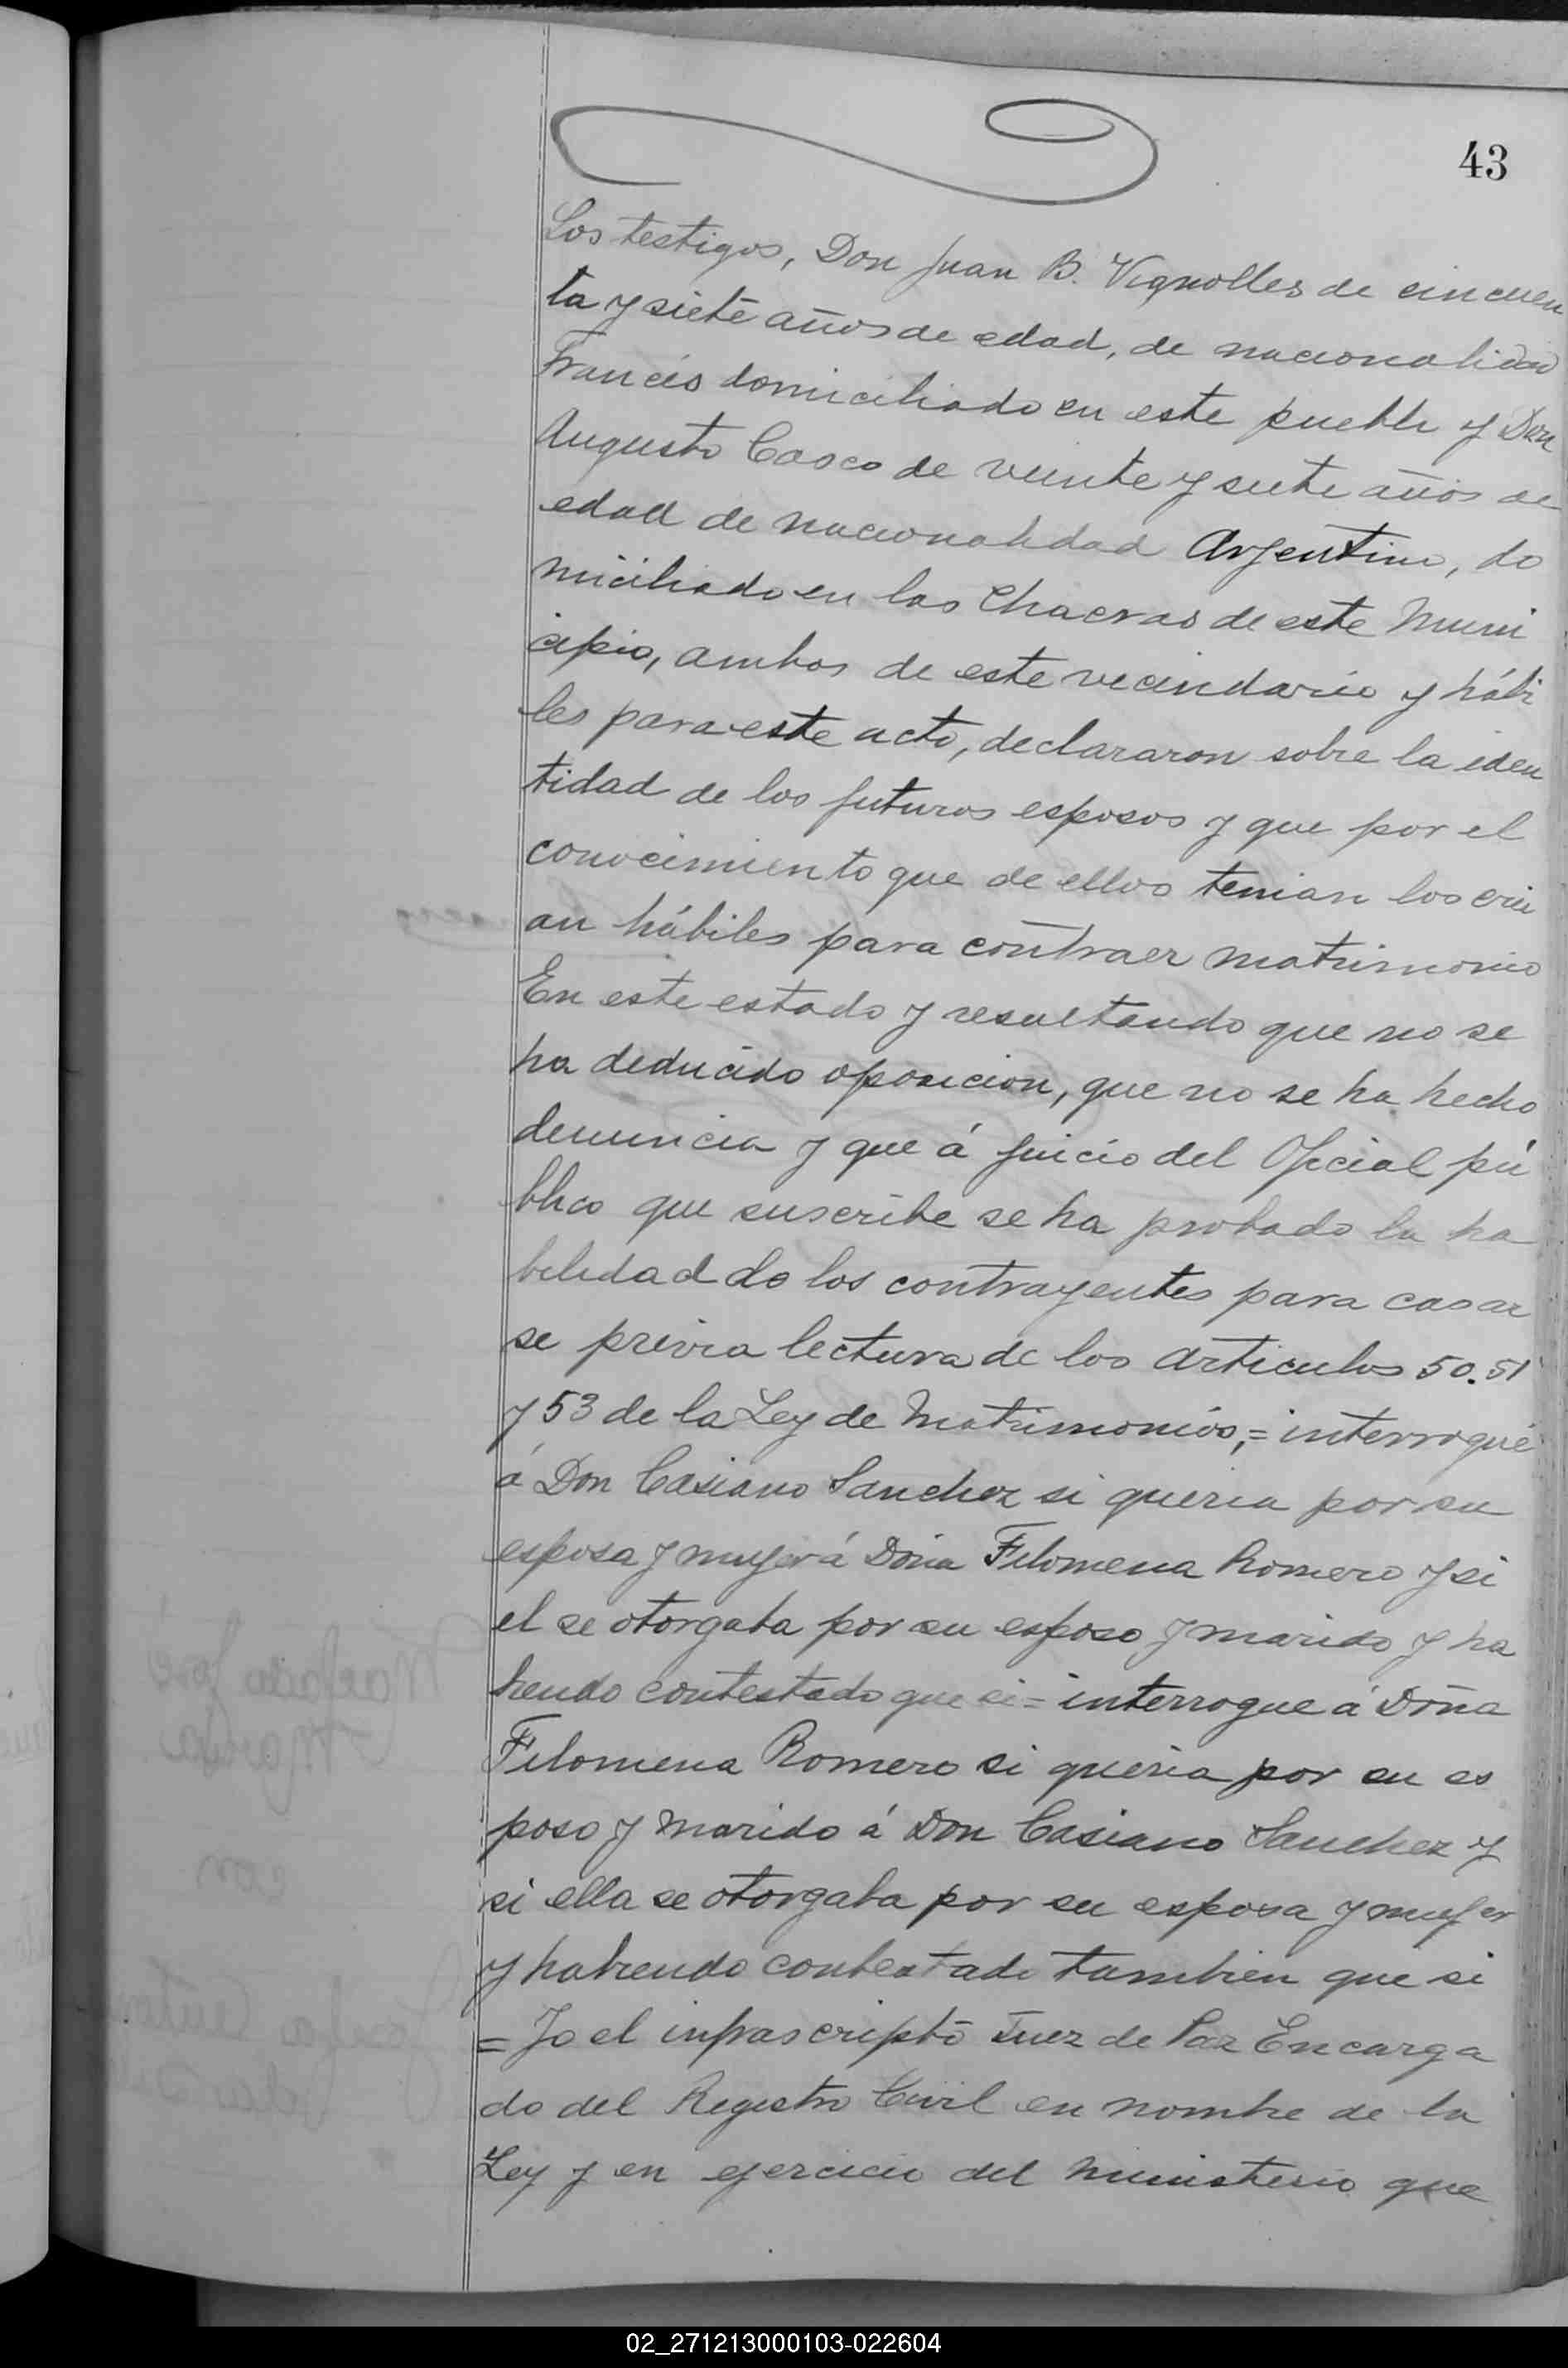 43
Los testigos, Don Juan B. Vignolles de cincuen
ta y siete años de edad, de nacionalidad
Francés domiciliado en este pueblo y Don
Augusto Casco de veinte y siete años de
edad de nacionalidad Argentino, do
miciliado en las Chacras de este Muni
cipio, ambos de este vecindario y hábi
les para este acto, declararon sobre la iden
tidad de los futuros esposos y que por el
conocimiento que de ellos tenian los crei
an hábiles para contraer matrimonio
En este estado y resultando que no se
ha deducido oposicion, que no se ha hecho
denuncia y que á juicio del Oficial pú
blico que suscribe se ha probado la ha
bilidad de los contrayentes para casar
se previa lectura de los articulos 50. 51
y 53 de la Ley de Matrimonios,= interrogué
á Don Casiano Sanchez si queria por su
esposa y mujer á Doña Filomena Romero y si
el se otorgaba por su esposo y marido y ha
biendo contestado que si= interrogue á Doña
Filomena Romero si queria por su es
poso y marido á Don Casiano Sanchez y
si ella se otorgaba por su esposa y mujer
y habiendo contestado tambien que si
= Yo el infrascripto Juez de Paz Encarga
do del Registro Civil en nombre de la
Ley y en ejercicio del ministerio que
02_271213000103-022604